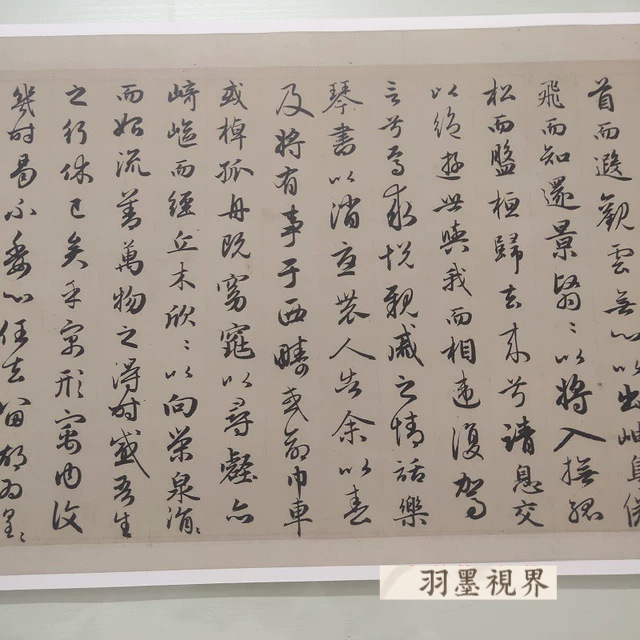 首而遐觀雲無心以出岫鳥倦
飛而知還景翳〻以將入撫孤
松而盤桓歸去來兮請息交
以絕遊世與我而相違復駕
言兮焉求悅親戚之情話樂
琴書以消憂農人告余以春
及將有事于西疇或命巾車
或棹孤舟既窈窕以尋壑亦
崎嶇而經丘木欣〻以向榮泉涓〻
而始流善萬物之得時感吾生
之行休已矣乎寓形寓內復
幾時曷不委心任去留胡為遑〻
羽墨視界